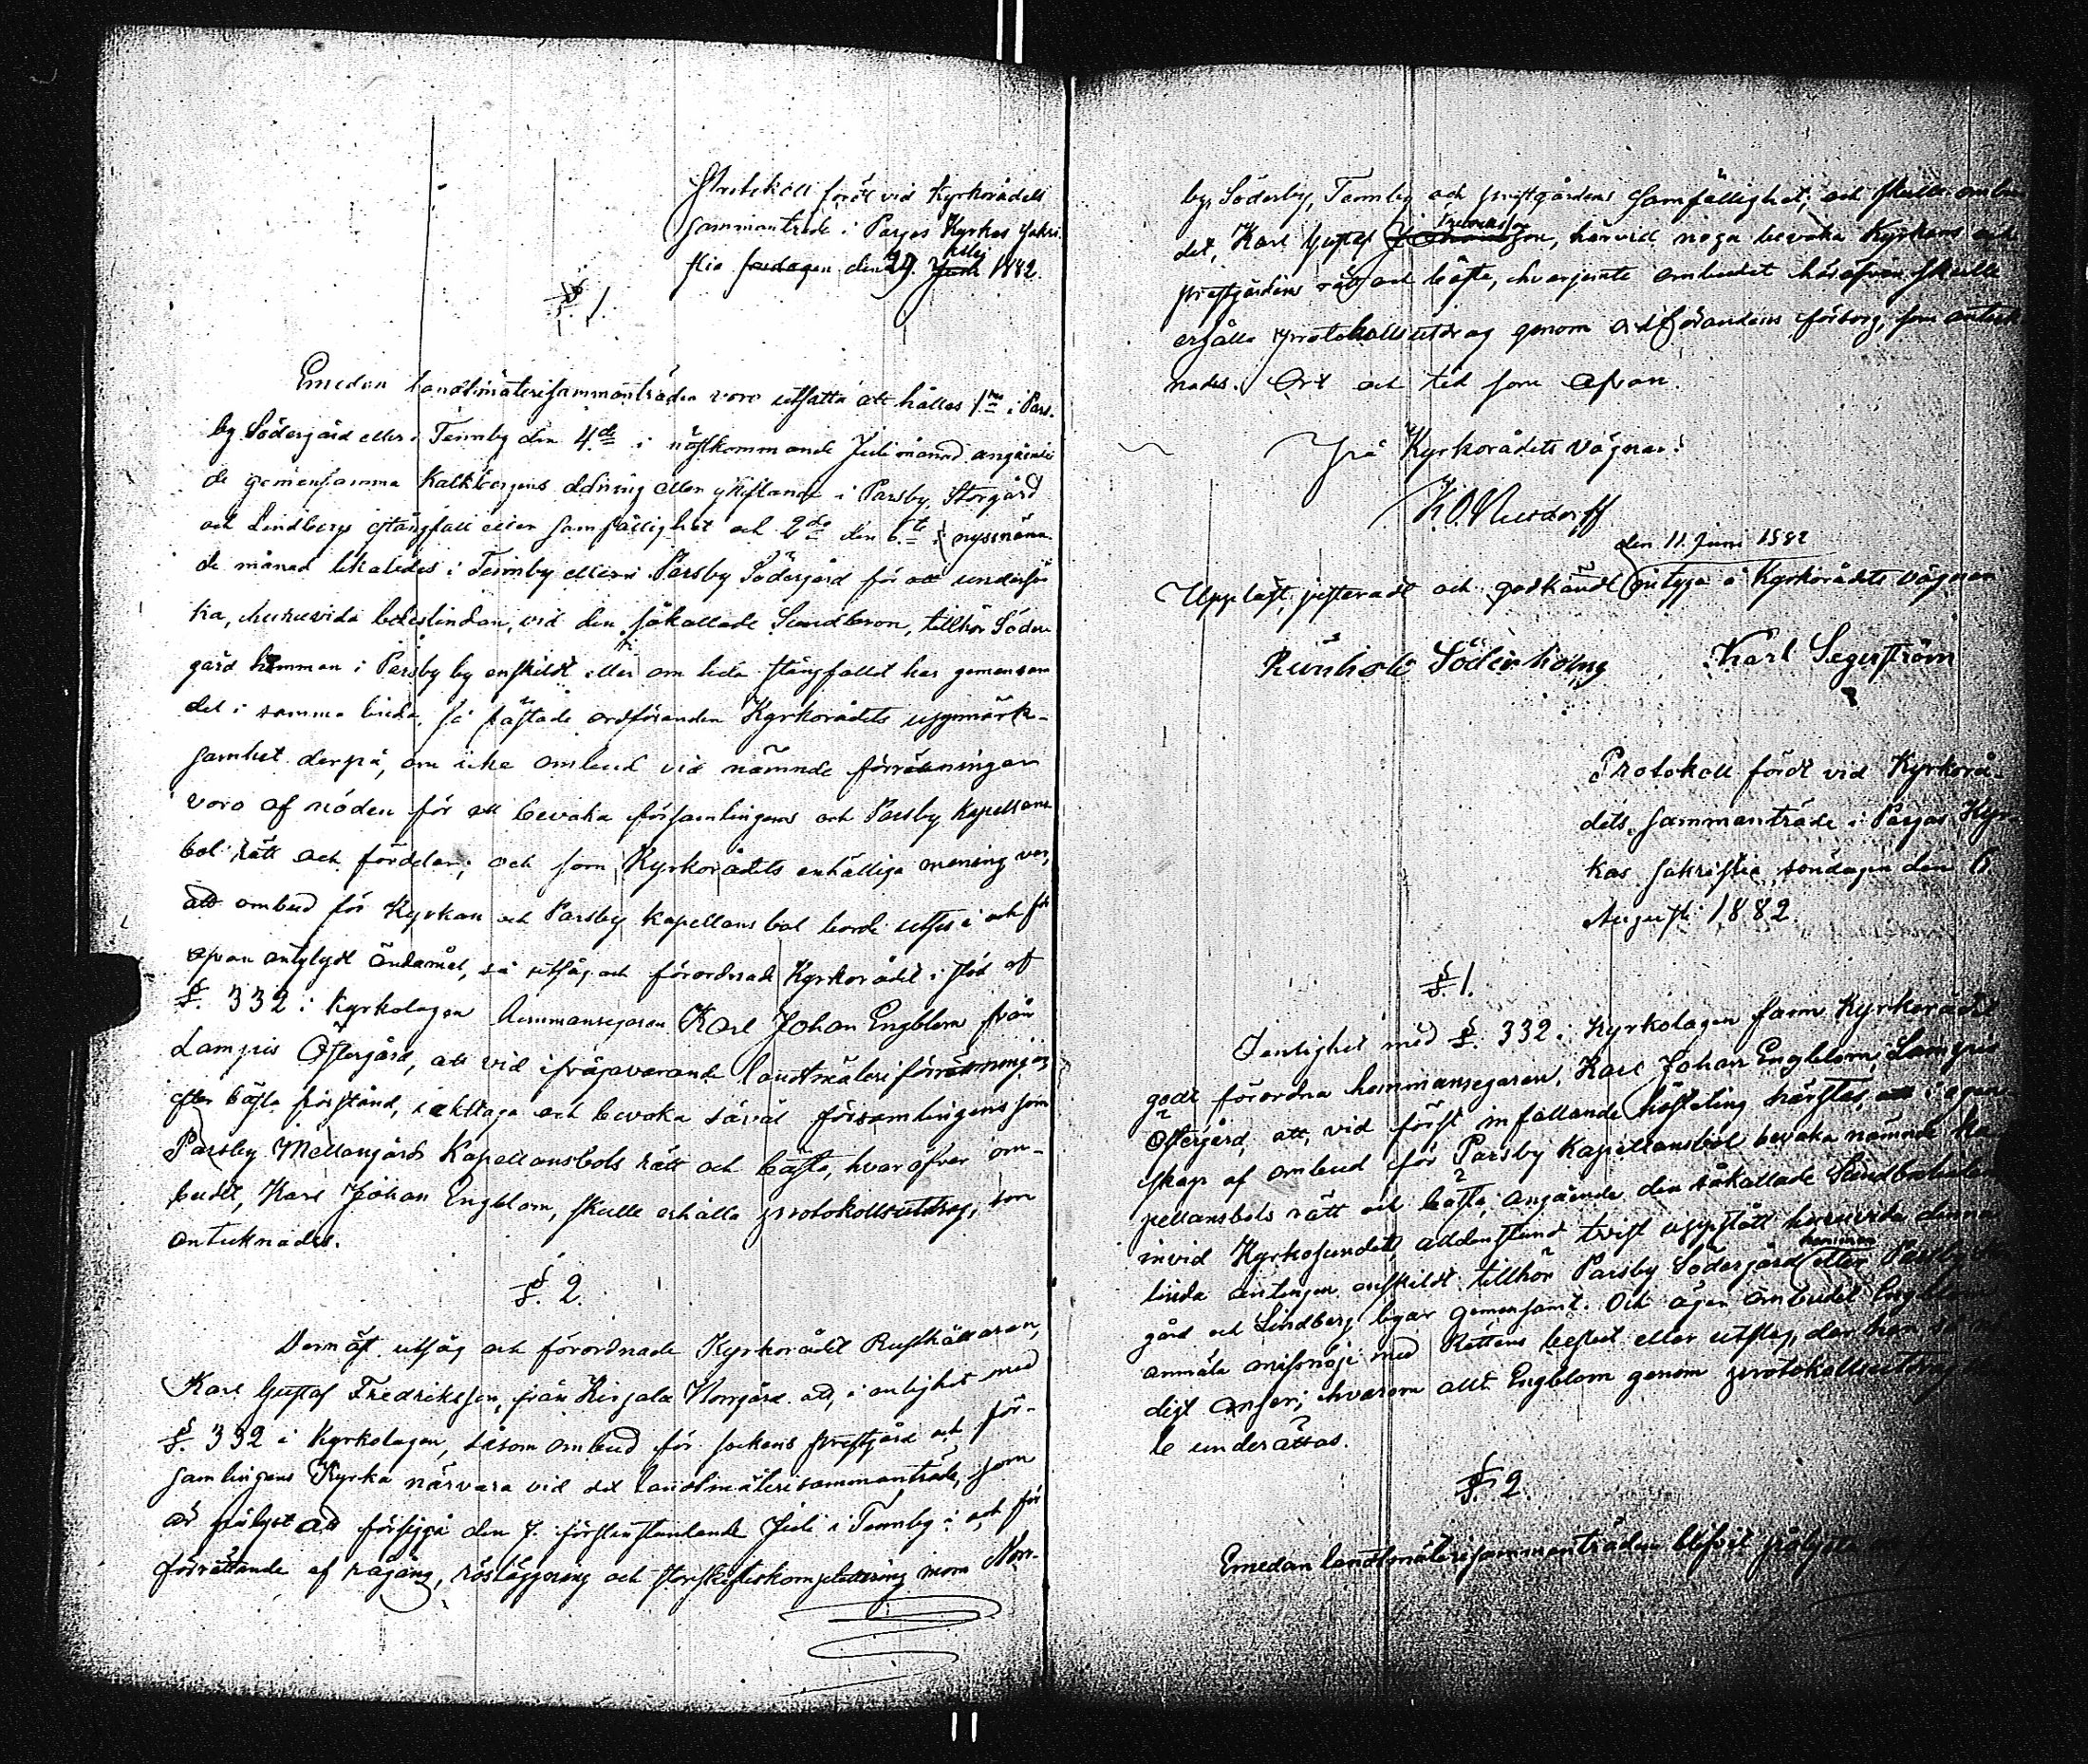 Protokoll fördt vid Kyrkorådets
sammanträde i Pargas Kyrkas sakri-
stia fredagen den 29. Juni 1882.
§ 1.
Emedan landtmäterisammanträden voro utsatta att hållas 1mo i Pars-
by Södergård eller i Tennby den 4de i nästkommande Juli månad angående
de gemensamma Kalkbergens delning eller skiftande i Parsby, Storgård
och Lindbergs stångfall eller samfällighet och 2do den 6te i nyssnämn-
de månad likaledes i Tennby eller i Parsby Södergård för att undersö-
ka, huruvida beteslindan, vid den såkallade Sundbron, tillhör Söder-
gård hemman i Parsby by enskildt eller om hela stångfallet har gemensam
del i samma linda, så fästade ordföranden Kyrkorådets uppmärk-
samhet derpå, om icke ombud vid nämnde förrättningar
voro af nöden för att bevaka församlingens och Parsby Kapellans-
bol rätt och fördelar; och som Kyrkorådets enhälliga mening var,
att ombud för Kyrkan och Parsby Kapellansbol borde utses i och för
ofvan antydt ändamål, så utsåg och förordnade Kyrkorådet i stöd af
§. 332 i Kyrkolagen hemmansegaren Karl Johan Engblom från
Lampis Östergård, att vid ifrågavarande landtmäteriförrättningar
efter bästa förstånd, iakttaga och bevaka såväl församlingens som
Parsby Mellangårds Kapellansbols rätt och bästa, hvaröfver om-
budet, Karl Johan Engblom, skulle erhålla protokollsutdrag, som
antecknades.
§. 2.
Dernäst utsåg och förordnade Kyrkorådet Rusthållaren,
Karl Gustaf Fredriksson, från Kirjala Norrgård att, i enlighet med
§. 332 i Kyrkolagen, såsom ombud för sockens prestgård och för-
samlingens Kyrka närvara vid det landtmäterisammanträde, som
är pålyst att försiggå den 7. förstinstundande Juli i Tennby i och för
förrättande af rågång, rösläggning och storskifteskomplettering inom Norr-
by, Söderby, Tennby och prestgårdens samfällighet; och skulle ombu-
det, Karl Gustaf Fredriksson, härvid noga bevaka Kyrkans och
prestgårdens rätt och bästa, hvarjemte ombudet häröfver skulle
erhålla protokollsutdrag genom ordförandens försorg, som anteck-
nades. Ort och tid som ofvan.
På Kyrkorådets vägnar:
den 11. Juni 1882
Uppläst, justeradt och godkändt intyga å Kyrkorådets vägnar
Söderholm Karl Segerström
Protokoll fördt vid Kyrkorå-
dets sammanträde i Pargas Kyr-
kas sakristia söndagen den 6.
Augusti 1882.
§ 1.
I enlighet med §. 332 i Kyrkolagen fann Kyrkorådet
godt förordna hemmansegaren, Karl Johan Engblom, Lampis
Östergård, att, vid först infallande hösteting härstäs, i egen-
skap af ombud för Parsby Kapellansbol bevaka nämnde Ka-
pellansbols rätt och bästa, angående den såkallade
invid Kyrkosundet, alldenstund tvist uppstått huruvida denna
linda antingen enskildt tillhör Parsby Södergård hemman eller Parsby
gård och Lindberg byar gemensamt. Och äger ombudet Engblom
anmäla missnöje med Rättens beslut eller utslag, der han så
digt anser; hvarom allt Engblom genom protokollsutdrag
le underättas.
§. 2.
Emedan landtmäterisammanträden blifvit pålysta